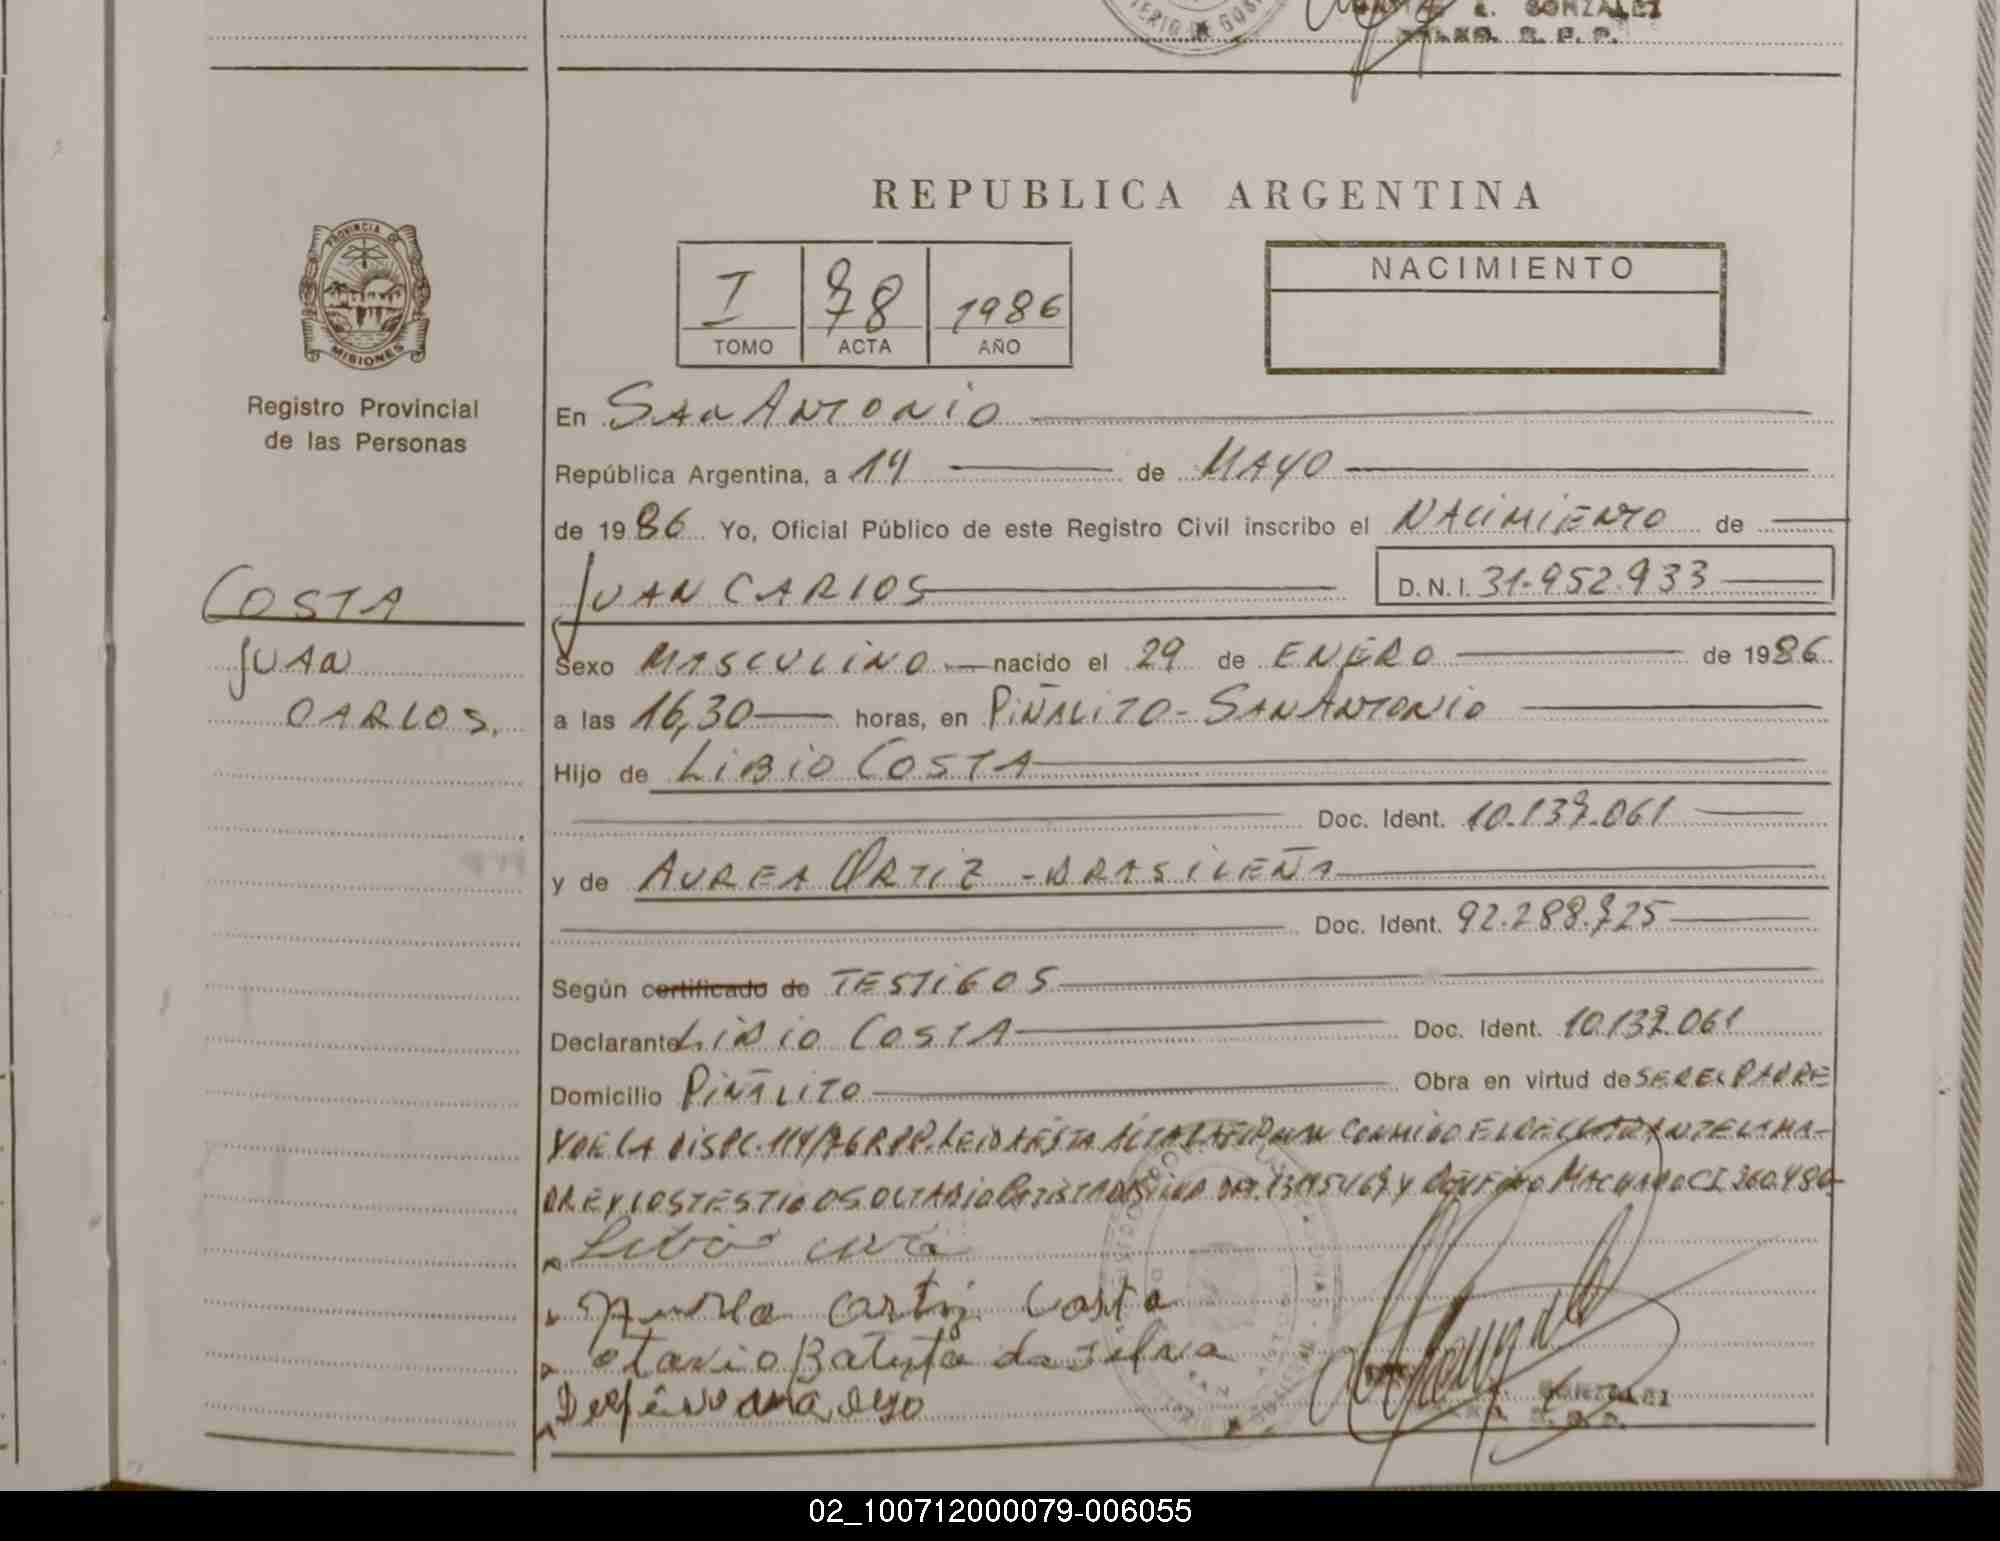 GONZALEZ
R. P. P.
REPUBLICA ARGENTINA
PROVINCIA DE
MISIONES
Registro Provincial
de las Personas
I 78 1986
TOMO ACTA AÑO
NACIMIENTO
En SAN ANTONIO
República Argentina, a 14 de MAYO
de 1986 Yo, Oficial Público de este Registro Civil inscribo el NACIMIENTO de
JUAN CARLOS D.N.I. 31.952.933
COSTA
JUAN
CARLOS.
Sexo MASCULINO nacido el 29 de ENERO de 1986
a las 16,30 horas, en PIÑALITO - SAN ANTONIO
Hijo de LIBIO COSTA
Doc. Ident. 10.137.061
y de AUREA ORTIZ - BRASILEÑA
Doc. Ident. 92.288.725
Según certificado de TESTIGOS
Declarante LIBIO COSTA Doc. Ident. 10.137.061
Domicilio PIÑALITO Obra en virtud de SER EL PADRE
Y DE LA DISPC. 114/76 RPP. LEIDA ESTA ACTA LA FIRMAN CONMIGO EL DECLARANTE LA MA-
DRE Y LOS TESTIGOS OCTABIO BATISTA DA SILVA Y MACHADO CI 260.480-
Costa
otavio Batista da Silva
GONZALEZ
R. P. P.
02_100712000079-006055